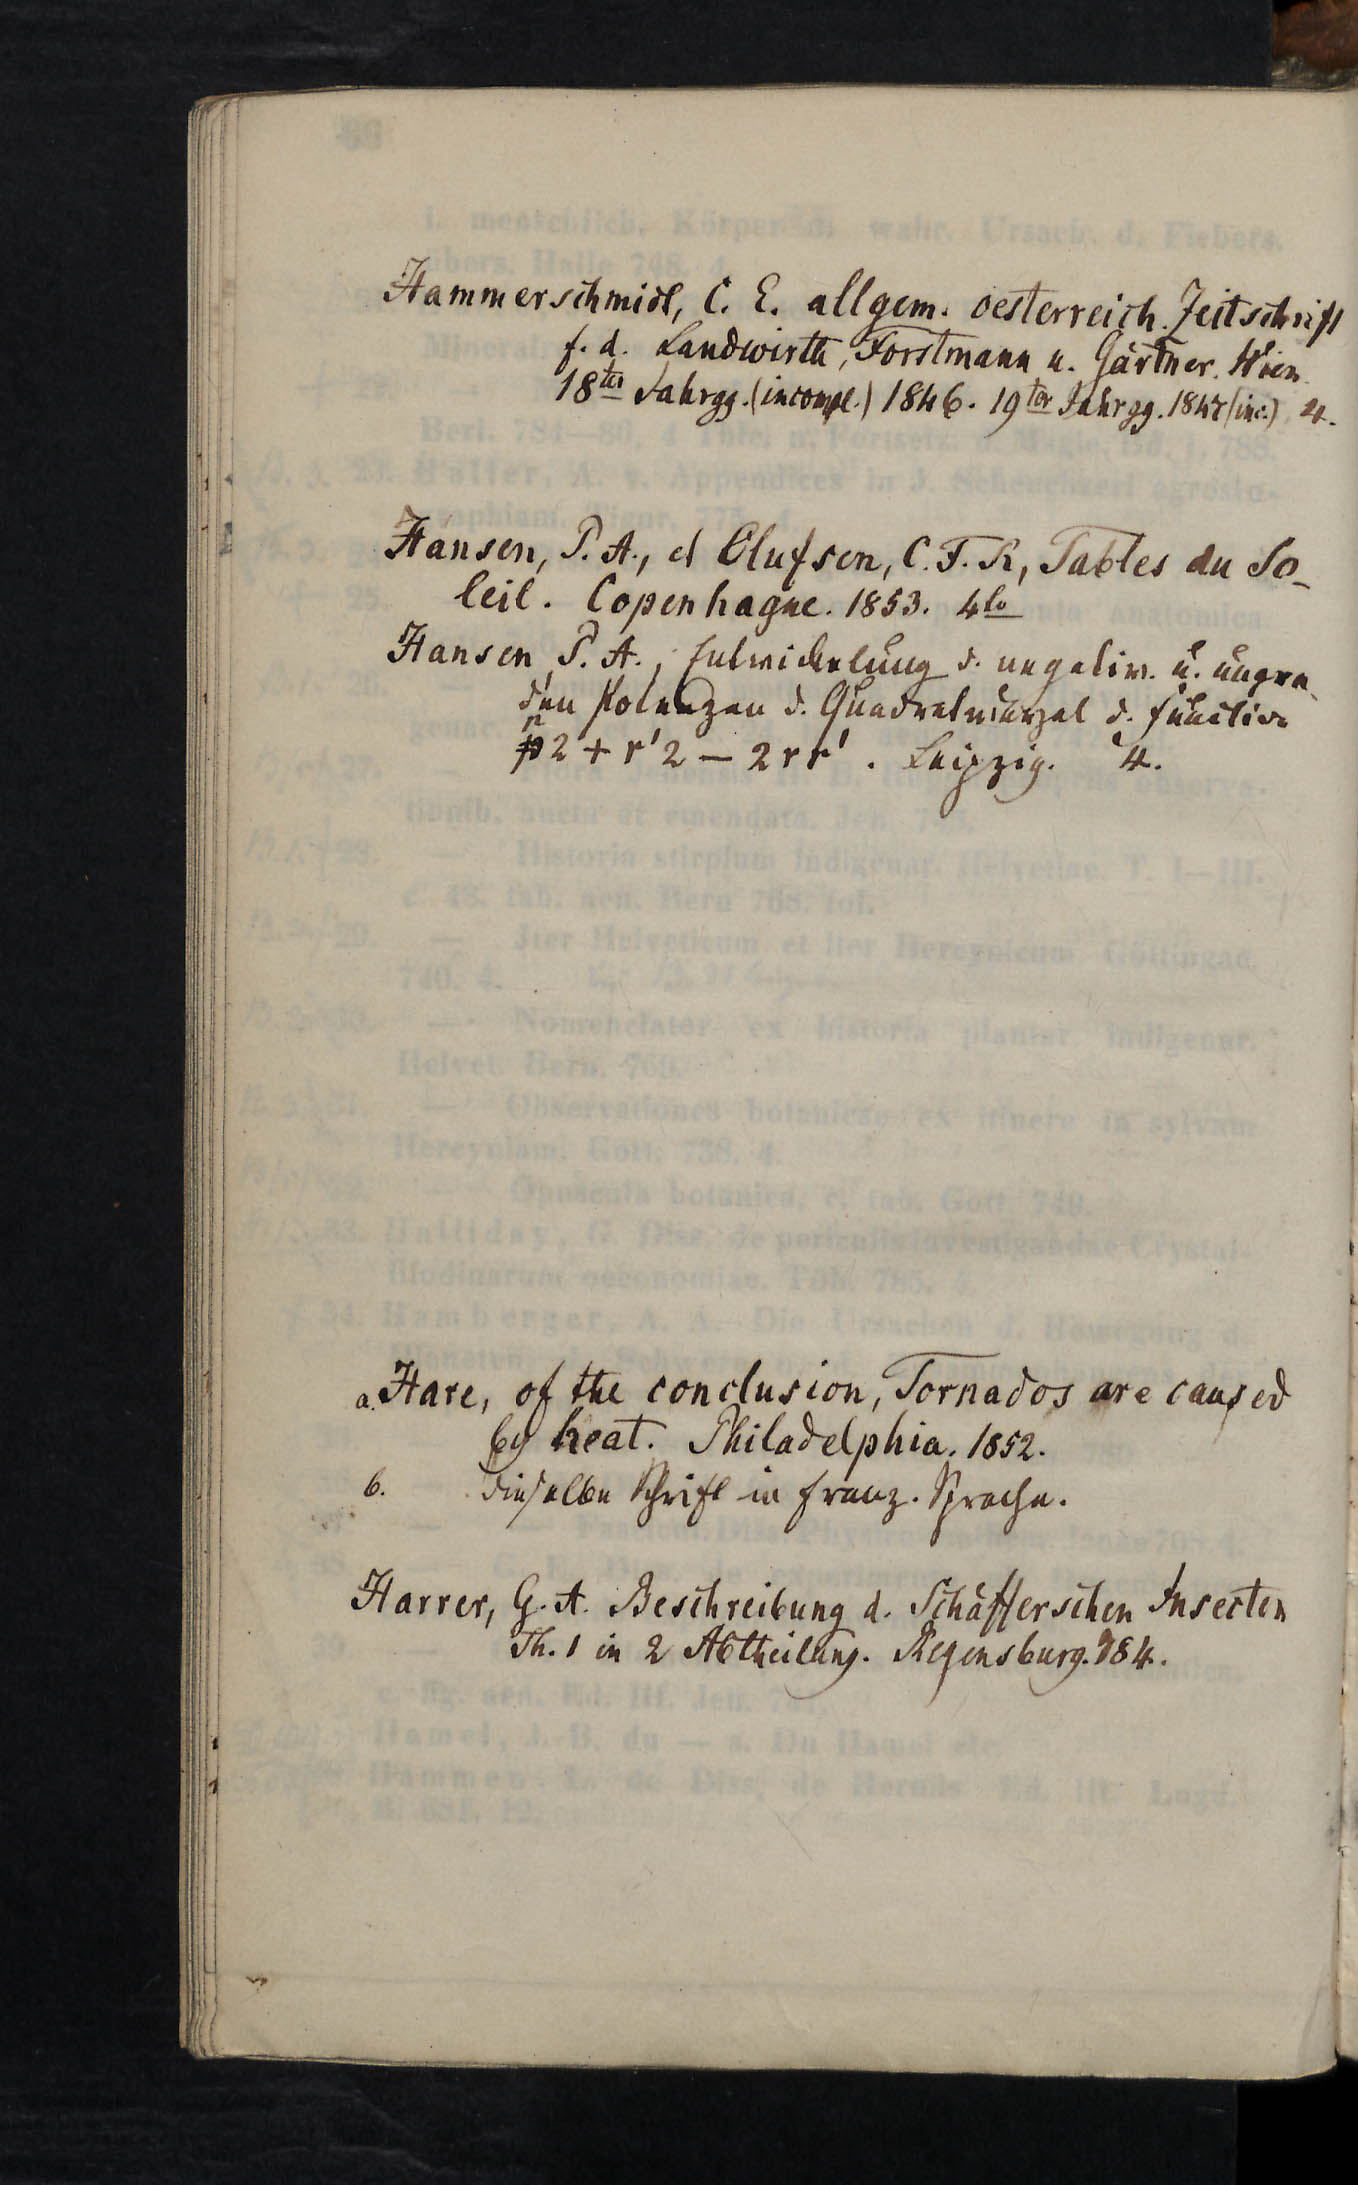 Hammerschmidt, C. E. allgem. oesterreich. Zeitschrift
f. d. Landwirth, Forstmann u. Gärtner. Wien.
18ter Jahrgg. (incompl.) 1846. 19ter Jahrgg. 1847 (inc.) 4.
Hansen, P. A., et Olufsen, C. F. R, Tables du So-
leil. Copenhague. 1853. 4to
Hansen P. A., Entwickelung d. negativ. u. ungra-
den Potenzen d. Quadratwurzel d. Function
r2 + r'2 – 2rr'. Leipzig. 4.
a. Hare, of the conclusion, Tornados are caused
by heat. Philadelphia. 1852.
b. dieselbe Schrift in franz. Sprache.
Harrer, G. A. Beschreibung d. Schäfferschen Insecten
Th. 1 in 2 Abtheilung. Regensburg. 784.